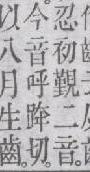 忍初覲二音。
今音呼切。
以八月生齒